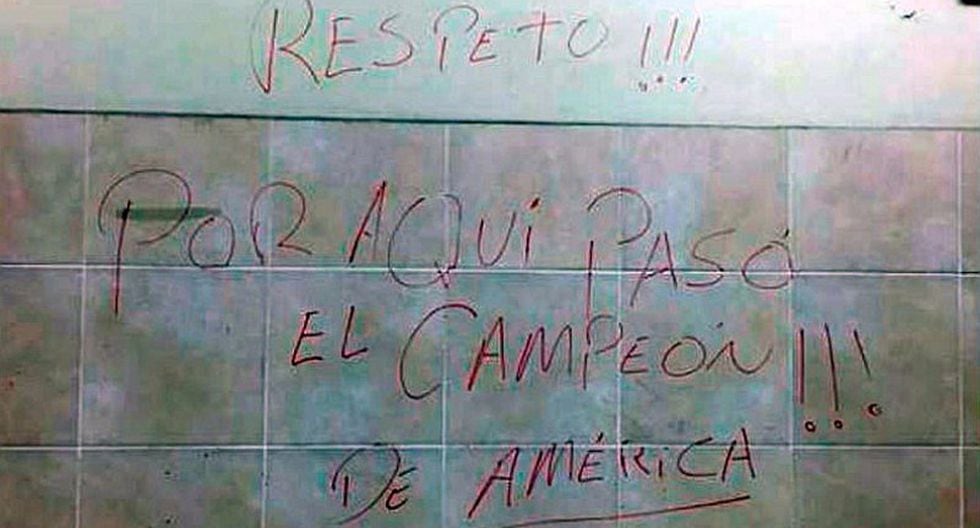 RESPETO!!!
POR AQUí PASÓ
EL CAMPEÓN!!!
DE AMÉRiCA